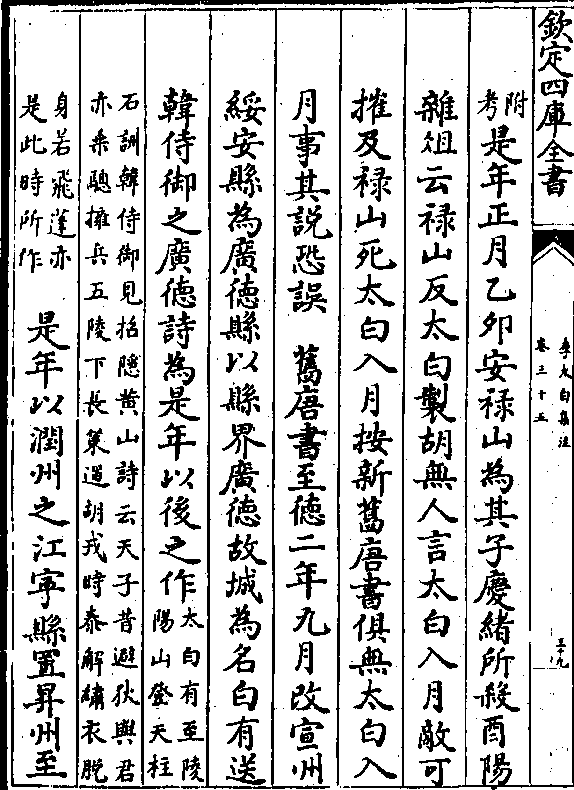 欽定四庫全書
李太白集注
卷三十五
三十九
附考
是年正月乙卯安禄山為其子慶緒所殺酉陽
雜俎云禄山反太白製胡無人言太白入月敵可
摧及禄山死太白入月按新舊唐書俱無太白入
月事其説恐誤 舊唐書至徳二年九月改宣州
綏安縣為廣徳縣以縣界廣徳故城為名白有送
韓侍御之廣徳詩為是年以後之作
太白有至陵
陽山登天柱
石詶韓侍御見招隠黄山詩云天子昔避狄與君
亦乘驄擁兵五陵下長策遏胡戎時泰解繡衣脱
身若飛蓬亦
是此時所作
是年以潤州之江寧縣置昇州至